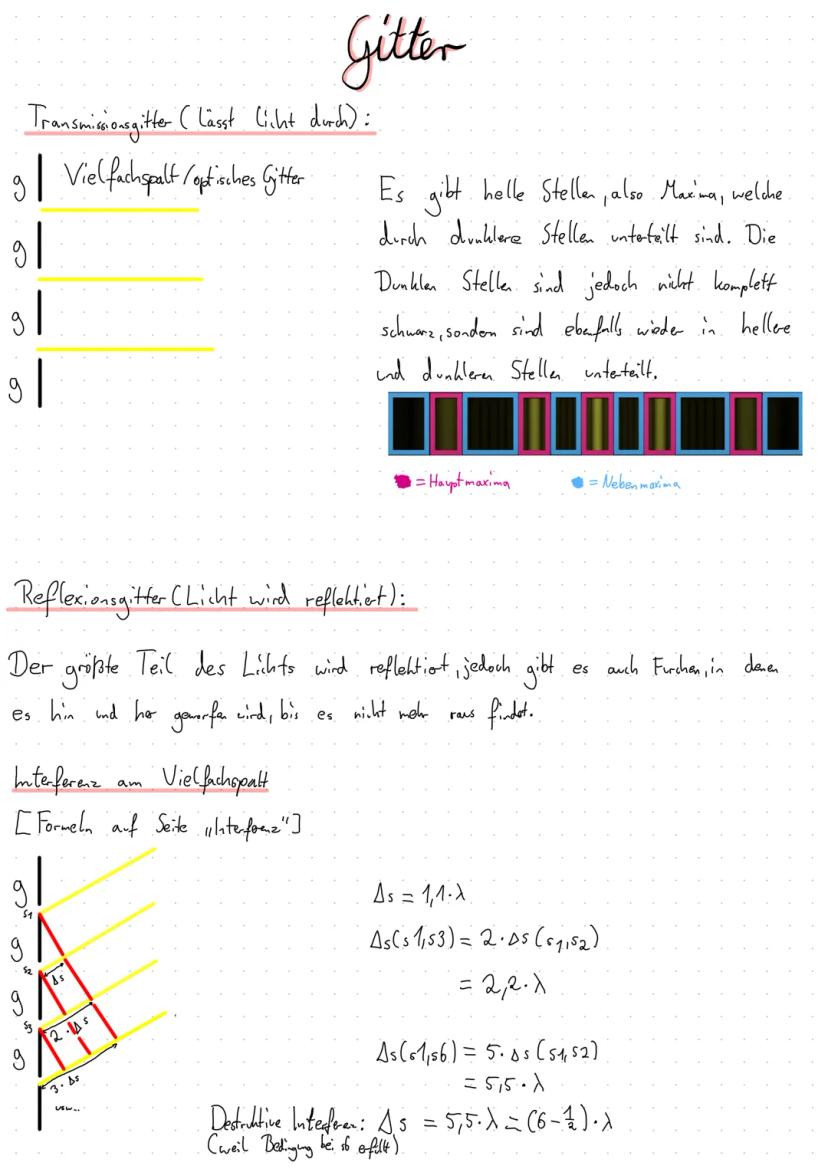 Gitter
Transmissionsgitter (Lässt Licht durch):
g Vielfachspalt/optisches Gitter
g
g
g
Es gibt helle Stellen, also Maxima, welche
durch dunklere Stellen unterteilt sind. Die
Dunklen Stellen sind jedoch nicht komplett
schwarz, sondern sind ebenfalls wieder in hellere
und dunkleren Stellen unterteilt.
= Hauptmaxima = Nebenmaxima
Reflexionsgitter (Licht wird reflektiert):
Der größte Teil des Lichts wird reflektiert, jedoch gibt es auch Furchen, in denen
es hin und her geworfen wird, bis es nicht mehr raus findet.
Interferenz am Vielfachspalt
[Formeln auf Seite „Interferenz"]
g
s1
g
s2
Δs
g
s3
2·Δs
g
3·Δs
usw..
Δs = 1,1·λ
Δs(s1,s3) = 2·Δs(s1,s2)
= 2,2·λ
Δs(s1,s6) = 5·Δs(s1,s2)
= 5,5·λ
Destruktive Interferenz: Δs = 5,5·λ = (6-½)·λ
(weil Bedingung bei s6 erfüllt)